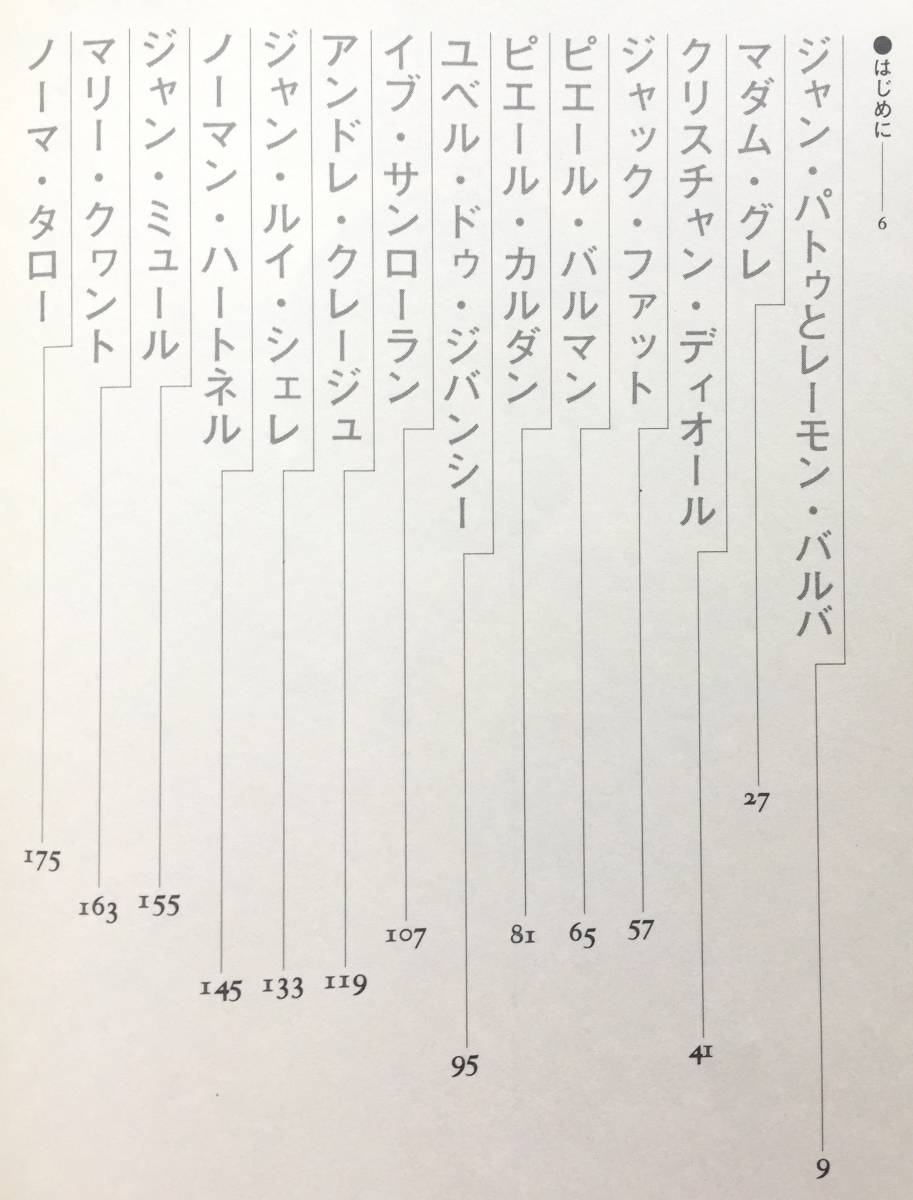 ●はじめに――6
ジャン・パトゥとレーモン・バルバ 9
マダム・グレ 27
クリスチャン・ディオール 41
ジャック・ファット 57
ピエール・バルマン 65
ピエール・カルダン 81
ユベル・ドゥ・ジバンシー 95
イブ・サンローラン 107
アンドレ・クレージュ 119
ジャン・ルイ・シェレ 133
ノーマン・ハートネル 145
ジャン・ミュール 155
マリー・クヮント 163
ノーマ・タロー 175